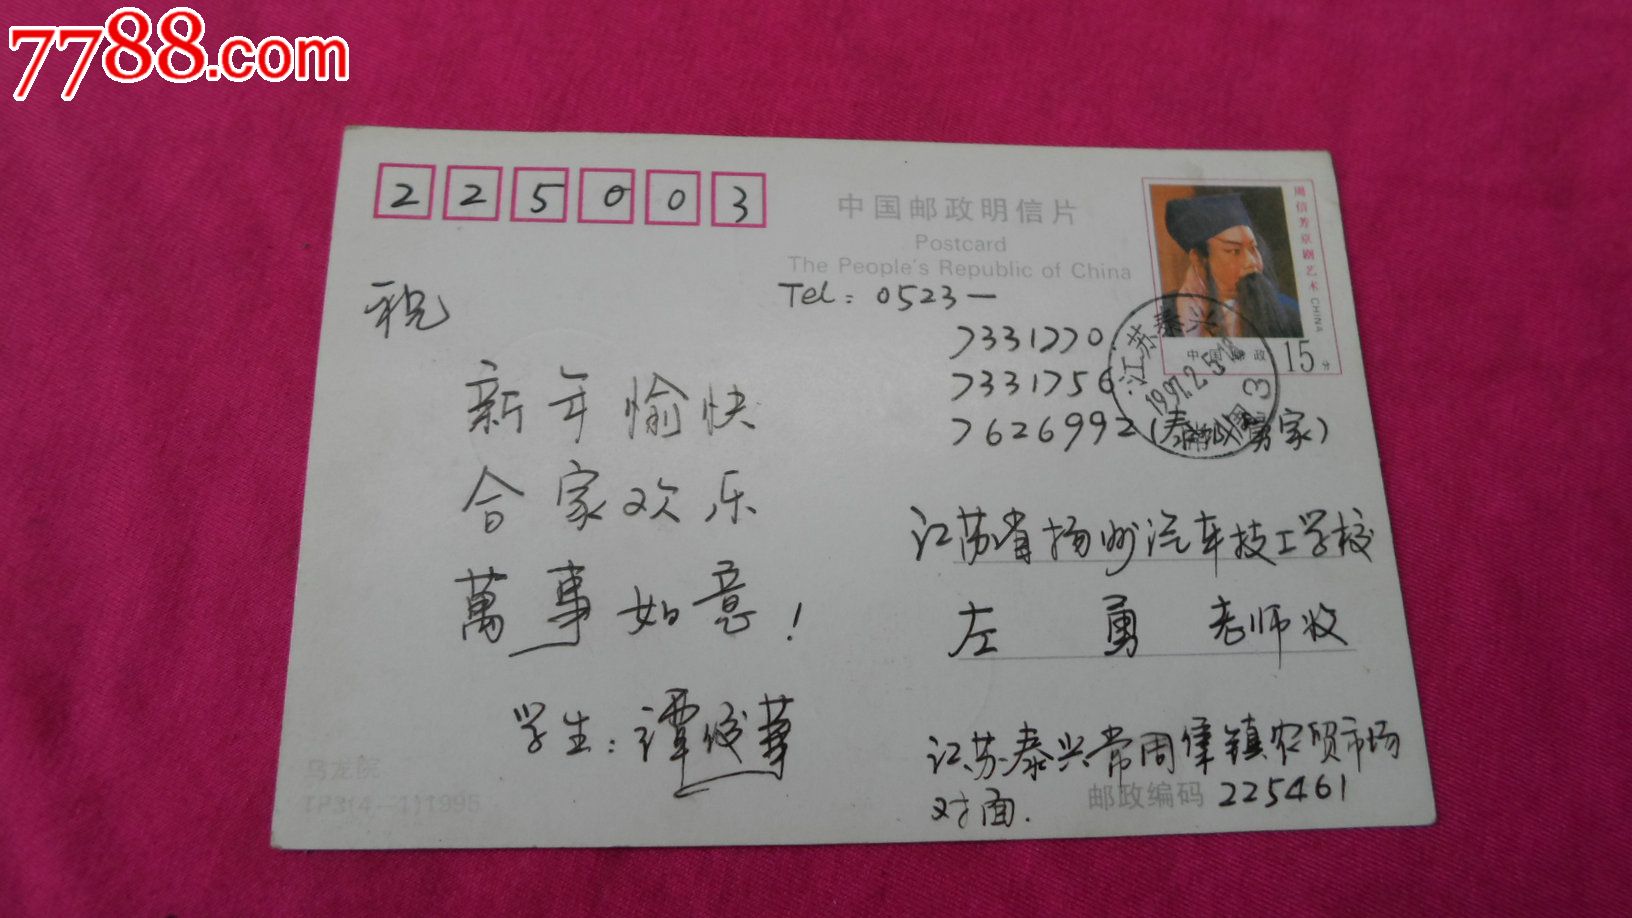 7788.com
225003
中国邮政明信片
Postcard
The People's Republic of China
周信芳京剧艺术 CHINA
中国邮政 15分
江苏泰兴
1997.2.5
3
Tel: 0523—
7331770.
7331756
7626992(泰 家)
祝
新年愉快
合家欢乐
萬事如意!
学生:谭俊華
江苏省扬州汽车技工学校
左勇老师收
江苏泰兴常周 镇农贸市场
对面.
邮政编码 225461
乌龙院
TP3(4-1)1995